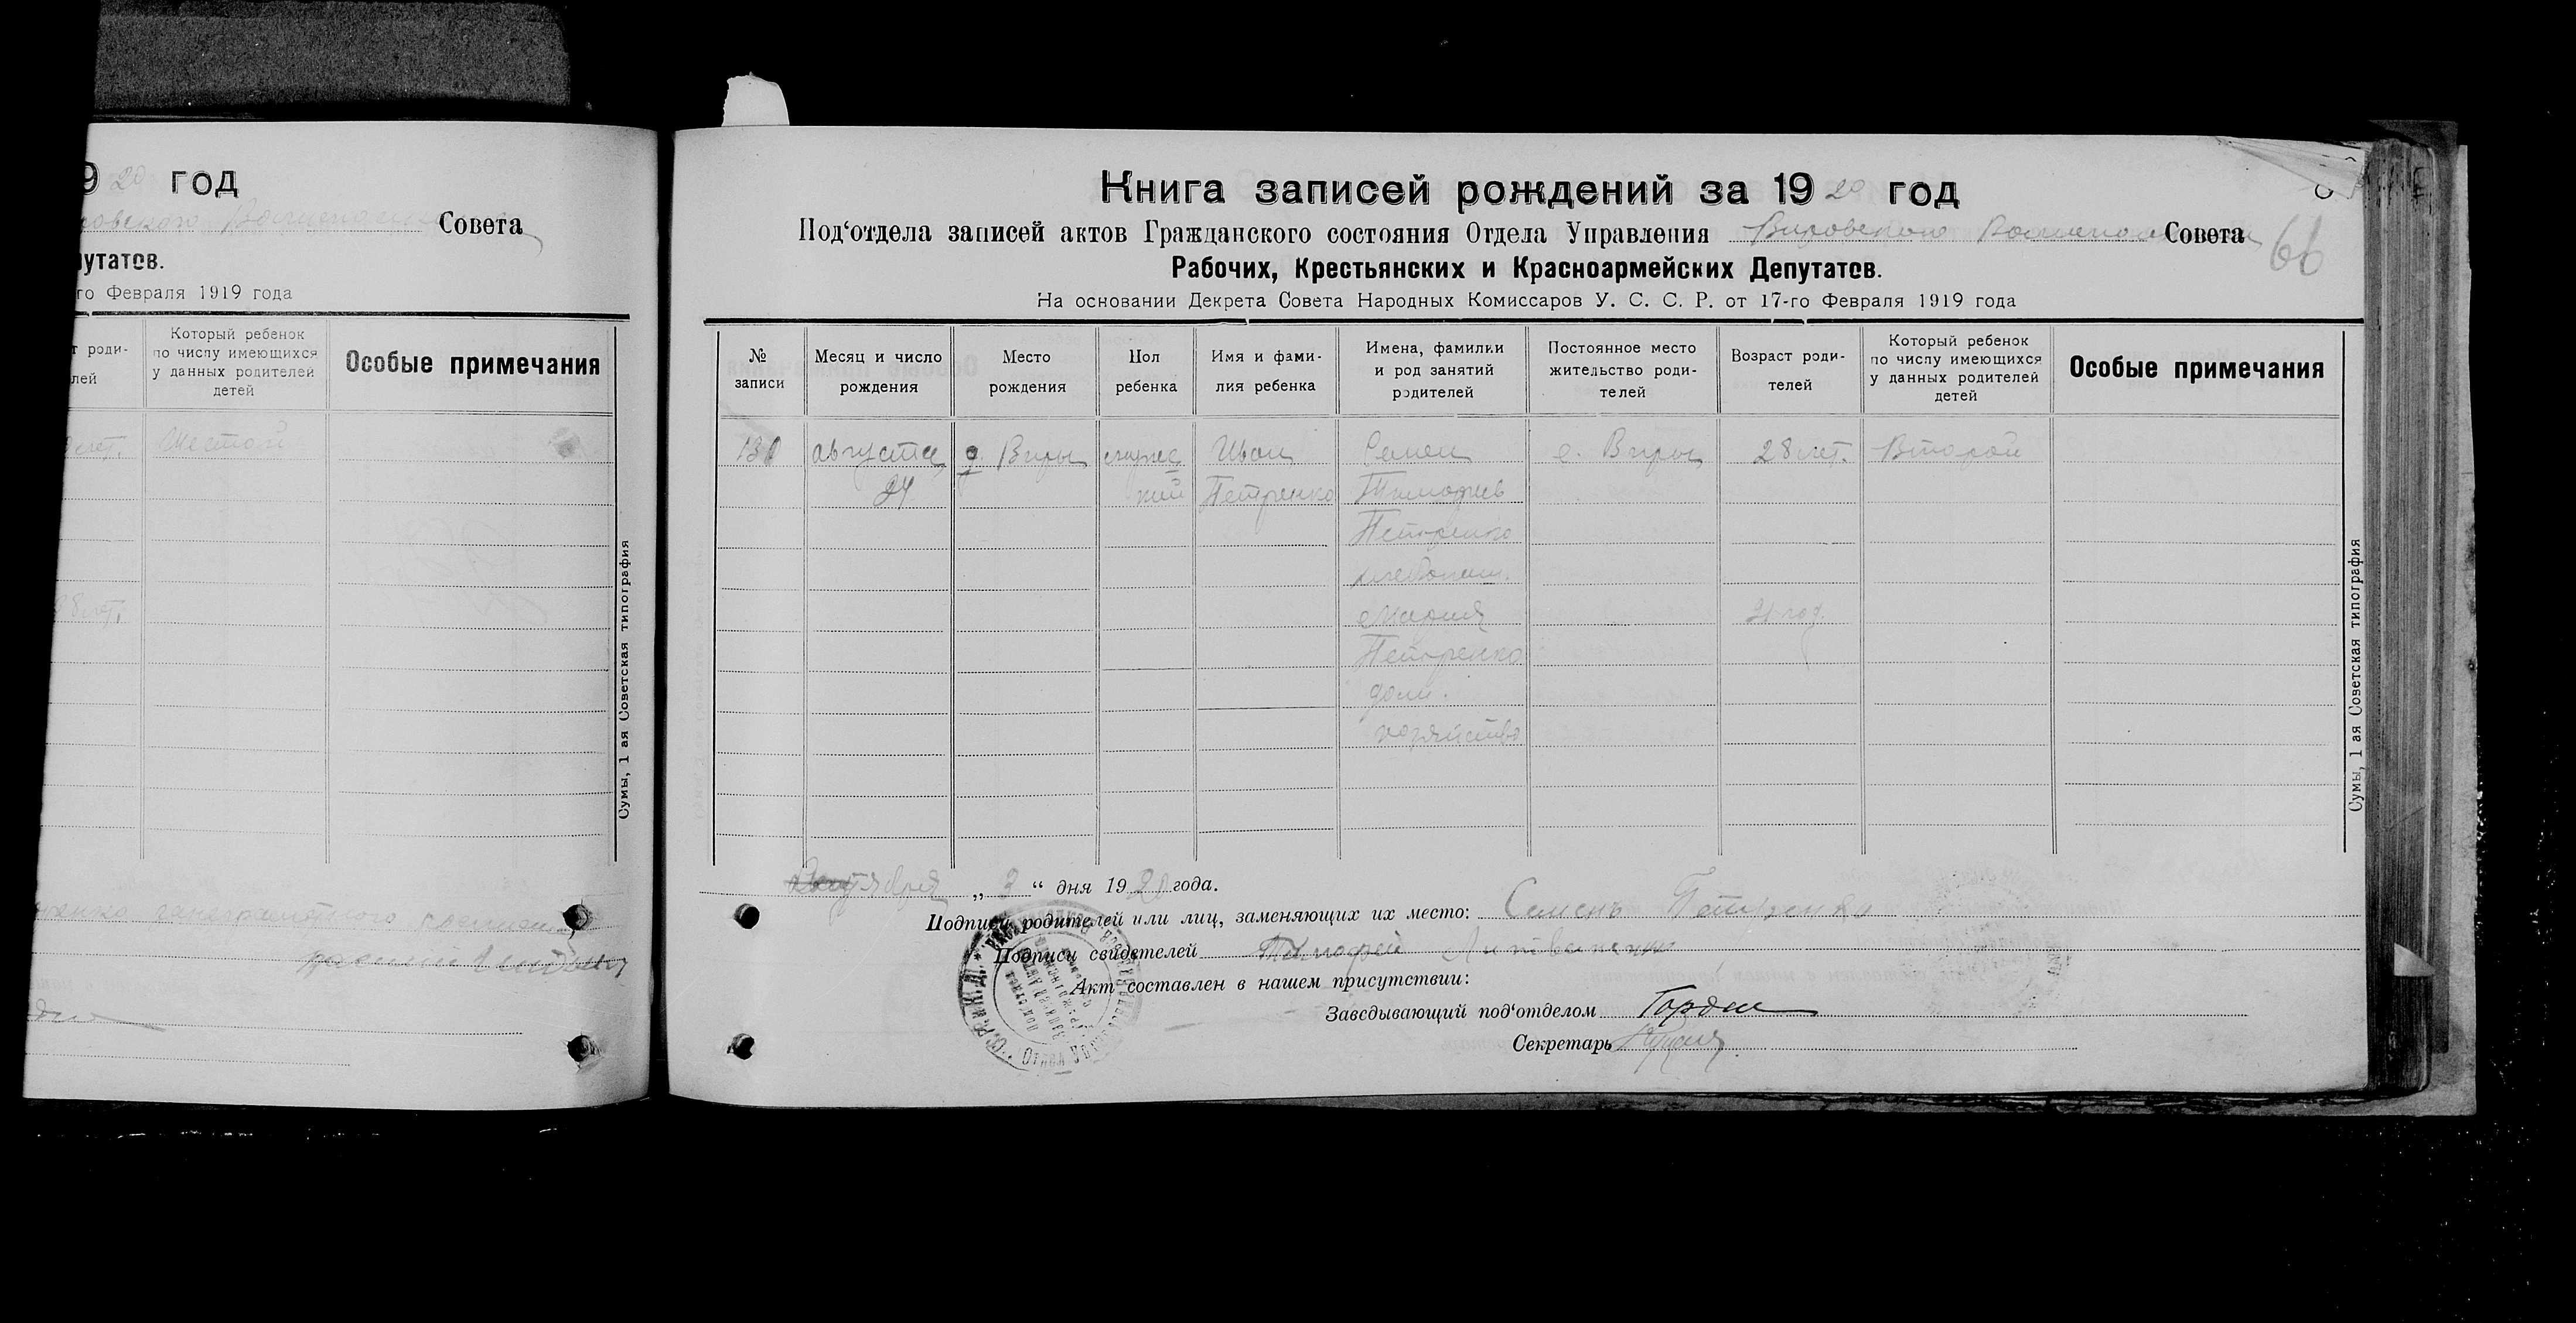 9 20 год
Совета
путатов.
го Февраля 1919 года
т роди-
лей
Который ребенок
по числу имеющихся
у данных родителей
детей
Особые примечания
лет.
Шестой
28 лет.
Сумы, 1 ая Советская типография
Книга записей рождений за 19 20 год
Под‘отдела записей актов Гражданского состояния Отдела Управления Вировского Совета
66
Рабочих, Крестьянских и Красноармейских Депутатов.
На основании Декрета Совета Народных Комиссаров У. С. С. Р. от 17-го Февраля 1919 года
№
записи
Месяц и число
рождения
Место
рождения
Пол
ребенка
Имя и фами-
лия ребенка
Имена, фамилии
и род занятий
родителей
Постоянное место
жительство роди-
телей
Возраст роди-
телей
Который ребенок
по числу имеющихся
у данных родителей
детей
Особые примечания
130 августа с. Виры мужес Иван Семен с. Виры 28 лет. Второй
24 кий Петренко Тимофеев
Петренко
хлебопаш.
Мария 21 год.
Петренко
дом.
хозяйство
Сумы, 1 ая Советская типография
„ 3 “ дня 1920 года.
Подписи родителей или лиц, заменяющих их место: Семенъ Петренко
Подписи свидетелей Тимофей Литвиненко
Акт составлен в нашем присутствии:
Заведывающий под‘отделом
Секретарь